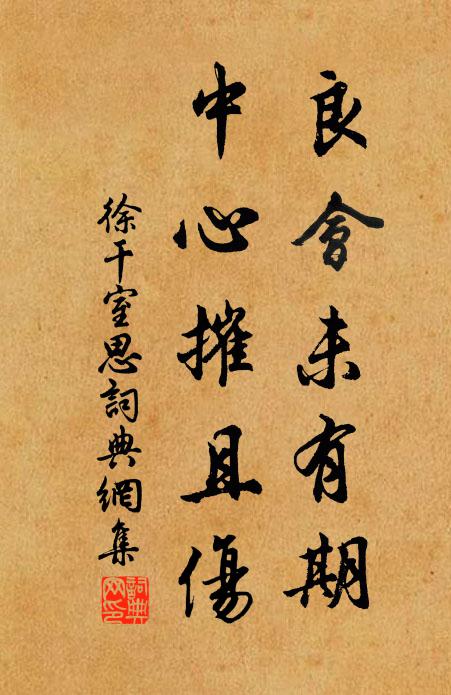 良會未有期
中心摧且傷
徐干室思詞典網集
詞典
网印